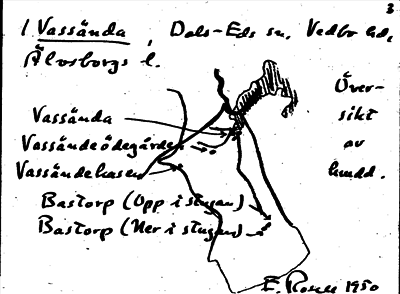 3
1. Vassända, Dals-Eds sn, Vedbo hd,
Älvsborgs l.
Över-
sikt
av
Vassända
Vassändeödegärde
Vassändehasen
Bastorp (Opp i stugan)
Bastorp (Ner i stugan)
1950